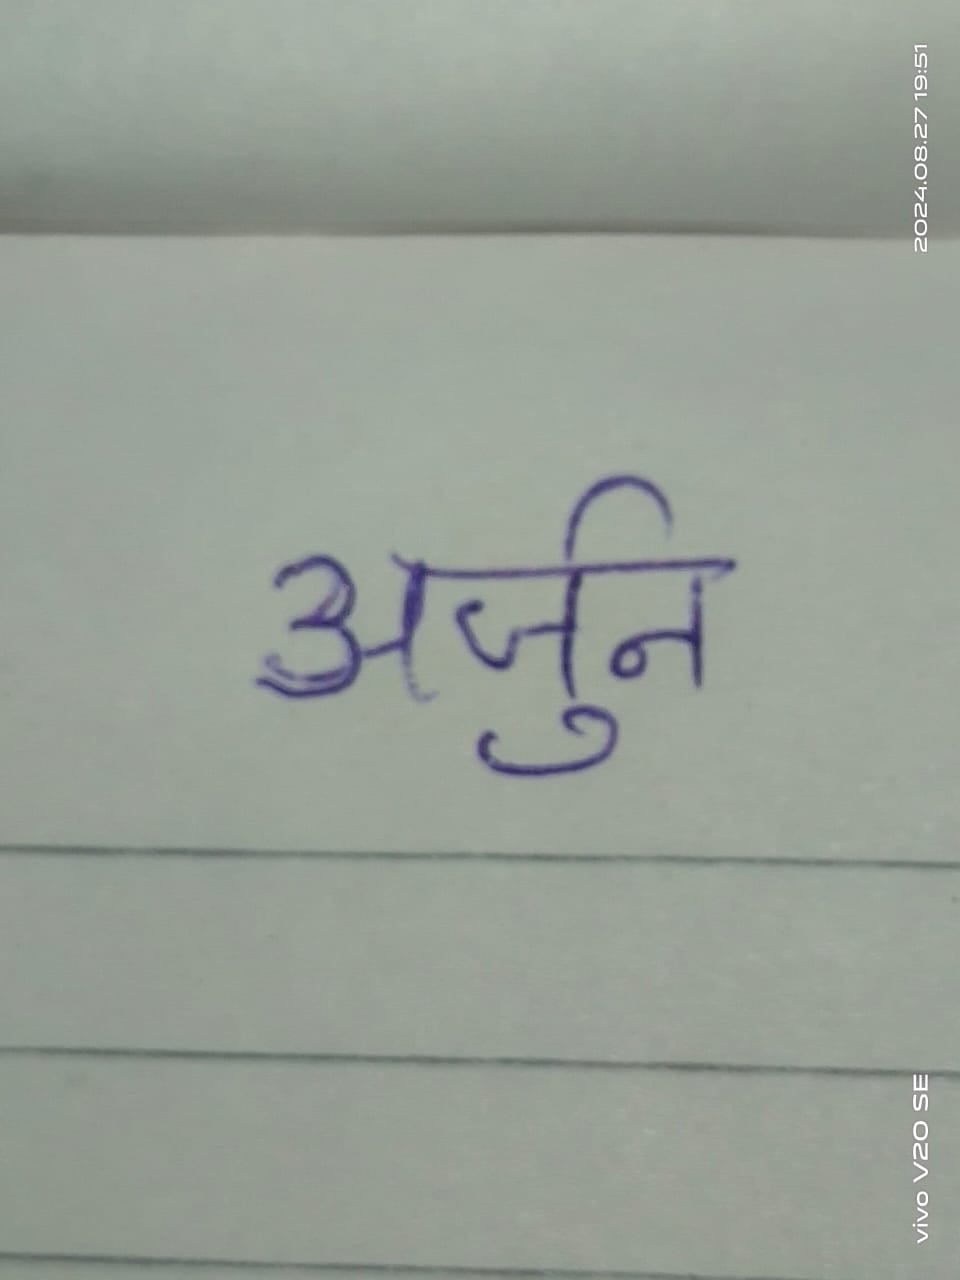 अर्जुन
2024.08.27 19:51
vivo V20 SE